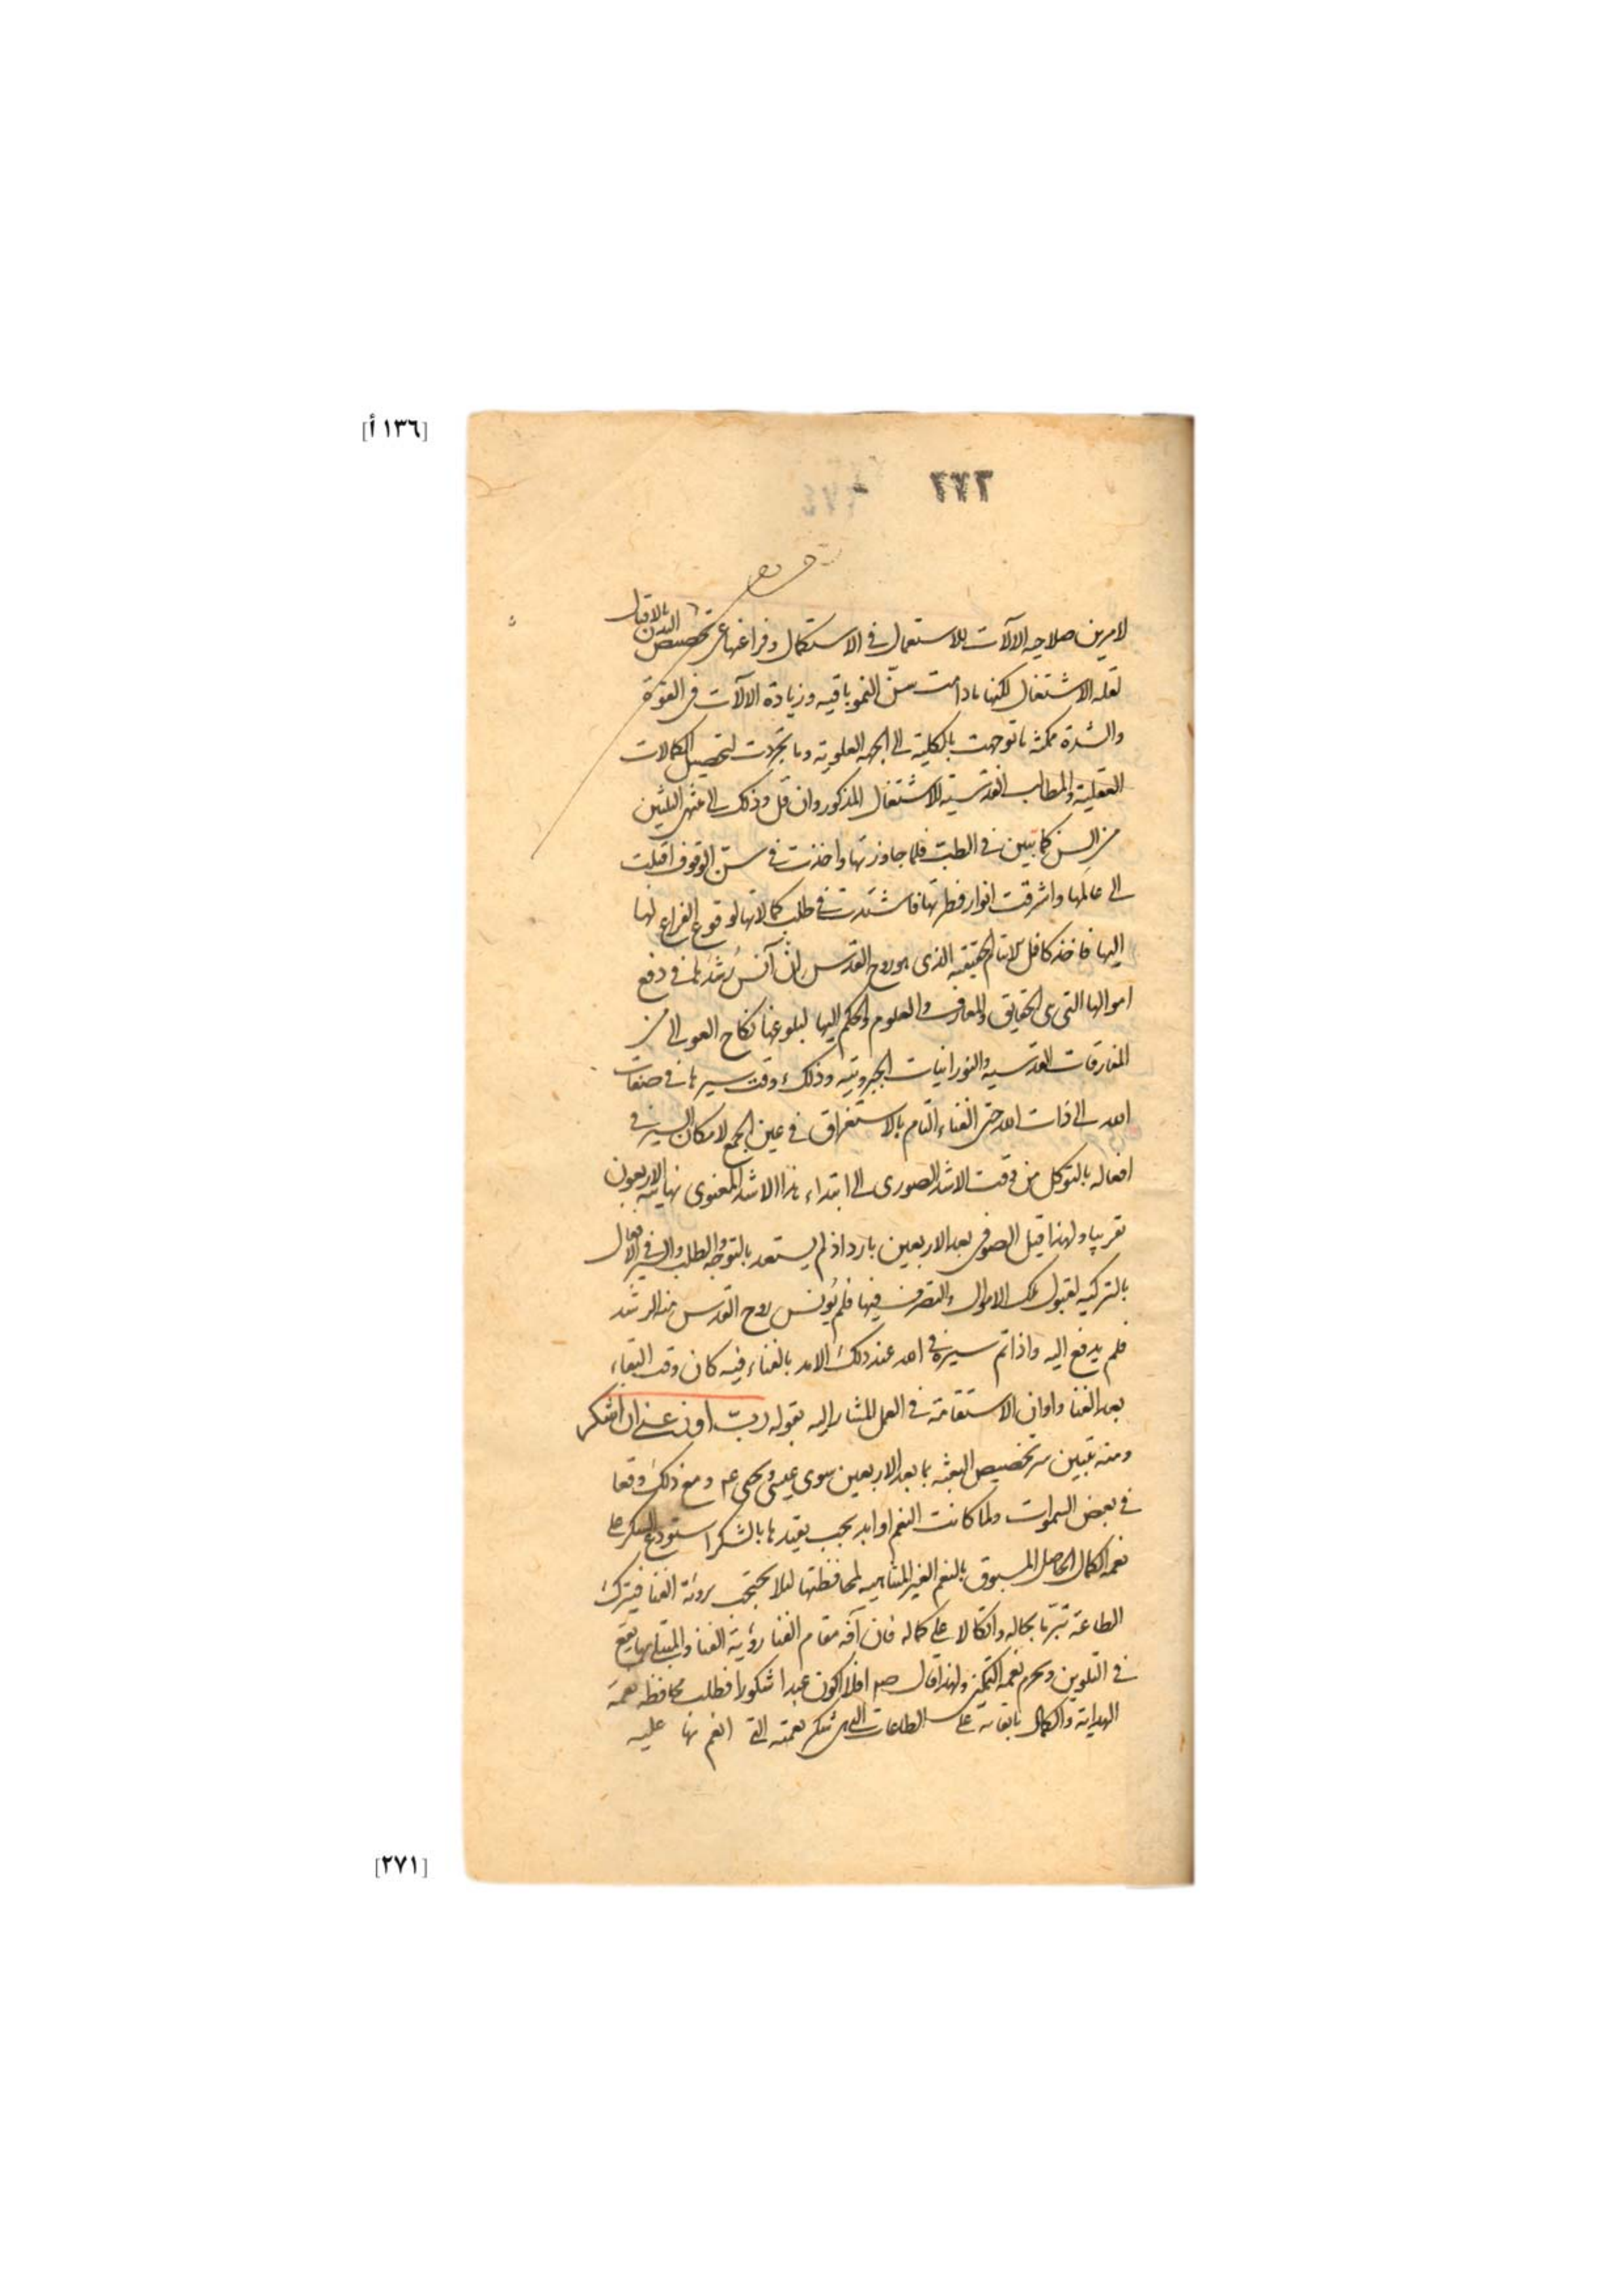 [١٣٦ أ]
٢٧٢
لامرين صلاحيه الالآت للاستعمال فى الاستكمال وفراغها عن تخصيص البدن بالاقبال
لقله الاشتغال لكنها مادامت سنّ النمو باقيه وزيادة الالآت فى القوّة
والشدة ممكنة ما توجهت بالكلية الى الجهه العلويه وما تجردت لتحصيل الكمالات
العقلية والمطالب القدسية للاشتغال المذكور وان قل وذلك الى منتهى الثلثين
من السن كما تبين فى الطب فلما جاوزتها واخذت فى سنّ الوقوف اقبلت
الى عالمها واشرقت انوار فطرتها فاشتدت فى طلب كمالاتها لوقوع الفراغ لها
اليها فاخذ كافل الايتام الحقيقيه الذى هو روح القدس ان آنس رشدها فى دفع
اموالها التى هى الحقايق والمعارف والعلوم والحكم اليها لبلوغها نكاح العوالى من
المفارقات القدسيه والنورانيات الجبروتيه وذلك وقت سيرها فى صفات
الله الى ذات الله حتى الفناء التام بالاستغراق فى عين الجمع لامكان السير فى
افعاله بالتوكل من وقت الاشد الصورى الى ابتداء هذا الاشد المعنوى نهايته الاربعون
تقريبا ولهذا قيل الصوفى بعد الاربعين بارد اذ لم يستعد بالتوجه والطلب والسير فى الافعال
بالتزكيه لقبول تلك الاموال والتصرف فيها فلم يؤنس روح القدس منه الرشد
فلم يدفع اليه واذا تم سيره فى الله عند ذلك الامد بالفناء فيه كان وقت البقاء
بعد الفنا واوان الاستقامة فى العمل المشار اليه بقوله ربّ اوزعنى ان اشكر
ومنه تبين سر تخصيص البعثه بما بعد الاربعين سوى عيسى ويحيى عم ومع ذلك وقعا
فى بعض السموات ولما كانت النعم اوابد يجب تقيدها بالشكر استودع الشكر على
نعمه الكمال الحاصل المسبوق بالنعم الغير المتناهيه لمحافظتها لئلا يحتجب برؤية الفنا فيترك
الطاعة تبرّيا بحاله واتكالا على كماله فان آفه مقام الفنا رؤية الفنا والمبتلى بها يقع
فى التلوين ويحرم نعمه التمكين ولهذا قال صم افلا اكون عبدا شكورا فطلب محافظه نعمة
الهداية والكمال باقامة على الطاعات التى هى شكر نعمته التى انعم بها عليه
[٢٧١]